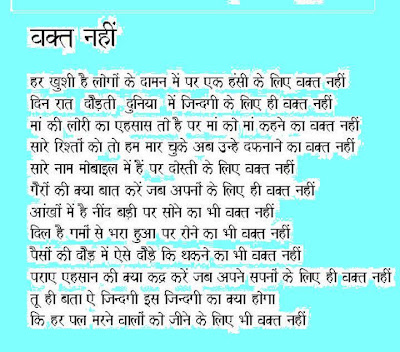 वक्त नहीं
हर खुशी है लोगों के दामन में पर एक हंसी के लिए वक्त नहीं
दिन रात दौड़ती दुनिया में जिन्दगी के लिए ही वक्त नहीं
मां की लोरी का एहसास तो है पर मां को मां कहने का वक्त नहीं
सारे रिश्तों को तो हम मार चुके अब उन्हे दफनाने का वक्त नहीं
सारे नाम मोबाइल में हैं पर दोस्ती के लिए वक्त नहीं
गैरों की क्या बात करें जब अपनों के लिए ही वक्त नहीं
आंखों में है नींद बड़ी पर सोने का भी वक्त नहीं
दिल है गमों से भरा हुआ पर रोने का भी वक्त नहीं
पैसों की दौड़ में ऐसे दौड़े कि थकने का भी वक्त नहीं
पराए एहसान की क्या कद्र करें जब अपने सपनों के लिए ही वक्त नहीं
तू ही बता ऐ जिन्दगी इस जिन्दगी का क्या होगा
कि हर पल मरने वालों को जीने के लिए भी वक्त नहीं